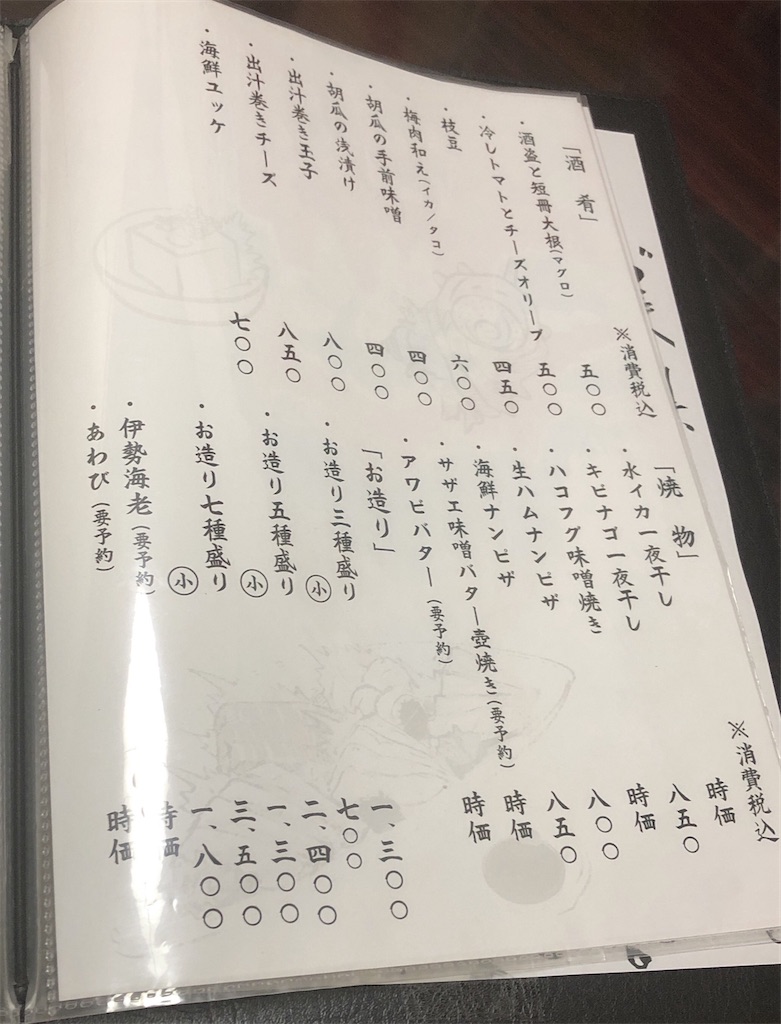 ※消費税込
「酒肴」
・酒盗と短冊大根(マグロ) 五〇〇
・冷しトマトとチーズオリーブ 五〇〇
・枝豆 四五〇
・梅肉和え(イカ/タコ) 六〇〇
・胡瓜の手前味噌 四〇〇
・胡瓜の浅漬け 四〇〇
・出汁巻き玉子 八〇〇
・出汁巻きチーズ 八五〇
・海鮮ユッケ 七〇〇
※消費税込
「焼物」
・水イカ一夜干し 時価
・キビナゴ一夜干し 八五〇
・ハコフグ味噌焼き 時価
・生ハムナンピザ 八〇〇
・海鮮ナンピザ 八五〇
・サザエ味噌バター壺焼き(要予約) 時価
・アワビバター(要予約) 時価
「お造り」
・お造り三種盛り 一、三〇〇
小 七〇〇
・お造り五種盛り 二、四〇〇
小 一、三〇〇
・お造り七種盛り 三、五〇〇
小 一、八〇〇
・伊勢海老(要予約) 時価
・あわび(要予約) 時価